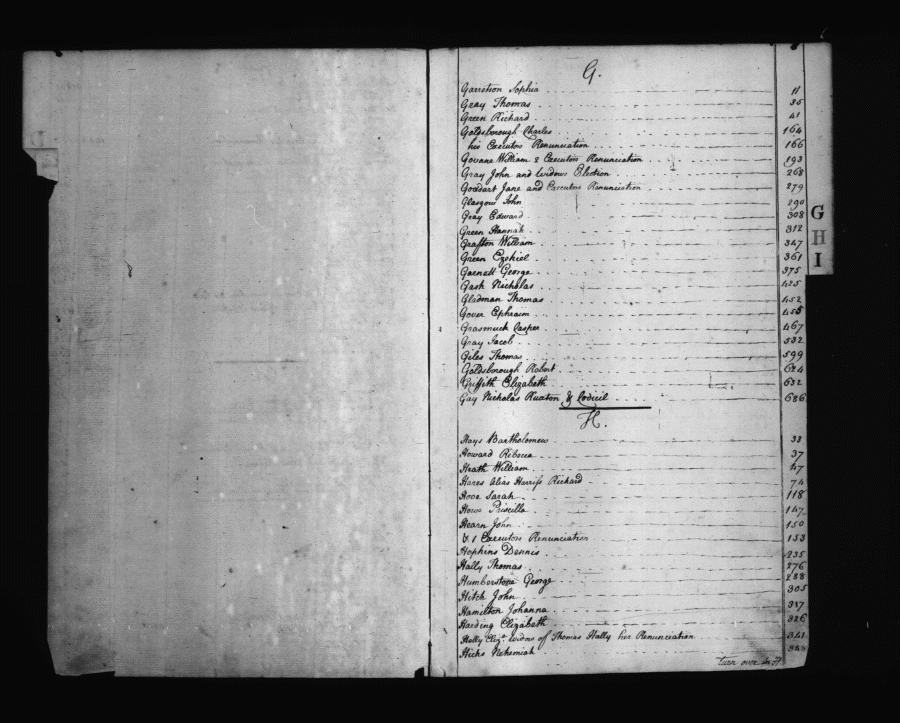 G.
Garretson Sophia 11
Gray Thomas 35
Green Richard 41
Goldsborough Charles 164
his Executors Renunciation 166
Govane William & Executors Renunciation 193
Gray John and Widows Election 268
Goddart Jane and Executors Renunciation 279
Glasgow John 290
Gray Edward 308
Green Hannah 312
Grafton William 347
Green Ezekiel 361
Garnett George 375
Gash Nicholas 425
Gladman Thomas 452
Gover Ephraim 455
Grasmuck Casper 467
Gray Jacob 532
Giles Thomas 599
Goldsborough Robert 624
Griffith Elizabeth 632
Gay Nicholas Ruxton & Codicil 686
H.
Hays Bartholomew 33
Howard Ribecca 37
Heath William 47
Hares Alias Harriss Richard 74
Hooe Sarah 118
Hows Priscilla 147
Hearn John 150
& 1 Executors Renunciation 153
Hopkins Dennis 235
Hally Thomas 276
Humberstone George 288
Hitch John 305
Hamilton Johanna 317
Harding Elizabeth 326
Hally Eliz.ª Widow of Thomas Hally her Renunciation 341
Hicks Nehemiah 348
turn over to
G
H
I